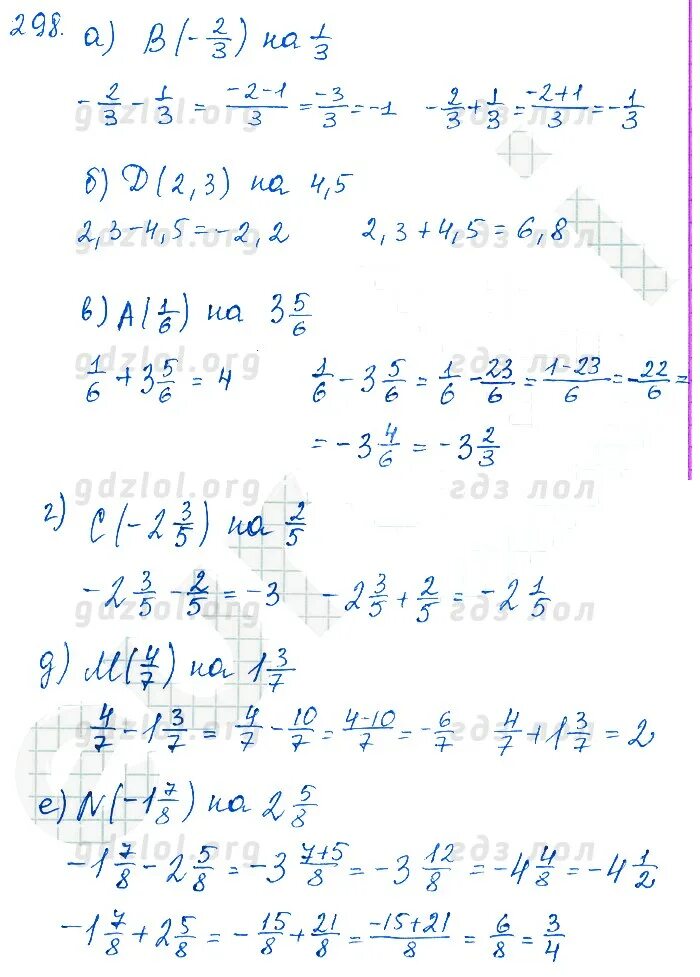 298. а) B(-2/3) на 1/3
-2/3 - 1/3 = (-2-1)/3 = -3/3 = -1   -2/3 + 1/3 = (-2+1)/3 = -1/3
gdzlol.org гдз лол
б) D(2,3) на 4,5
2,3-4,5=-2,2   2,3+4,5=6,8
gdzlol.org гдз лол
в) A(1/6) на 3 5/6
gdzlol.org гдз лол
1/6 + 3 5/6 = 4   1/6 - 3 5/6 = 1/6 - 23/6 = (1-23)/6 = -22/6 =
= -3 4/6 = -3 2/3
gdzlol.org гдз лол
г) C(-2 3/5) на 2/5
-2 3/5 - 2/5 = -3   -2 3/5 + 2/5 = -2 1/5
gdzlol.org гдз лол
д) M(4/7) на 1 3/7
4/7 - 1 3/7 = 4/7 - 10/7 = (4-10)/7 = -6/7   4/7 + 1 3/7 = 2
gdzlol.org гдз лол
е) N(-1 7/8) на 2 5/8
gdzlol.org гдз лол
-1 7/8 - 2 5/8 = -3 (7+5)/8 = -3 12/8 = -4 4/8 = -4 1/2
-1 7/8 + 2 5/8 = -15/8 + 21/8 = (-15+21)/8 = 6/8 = 3/4